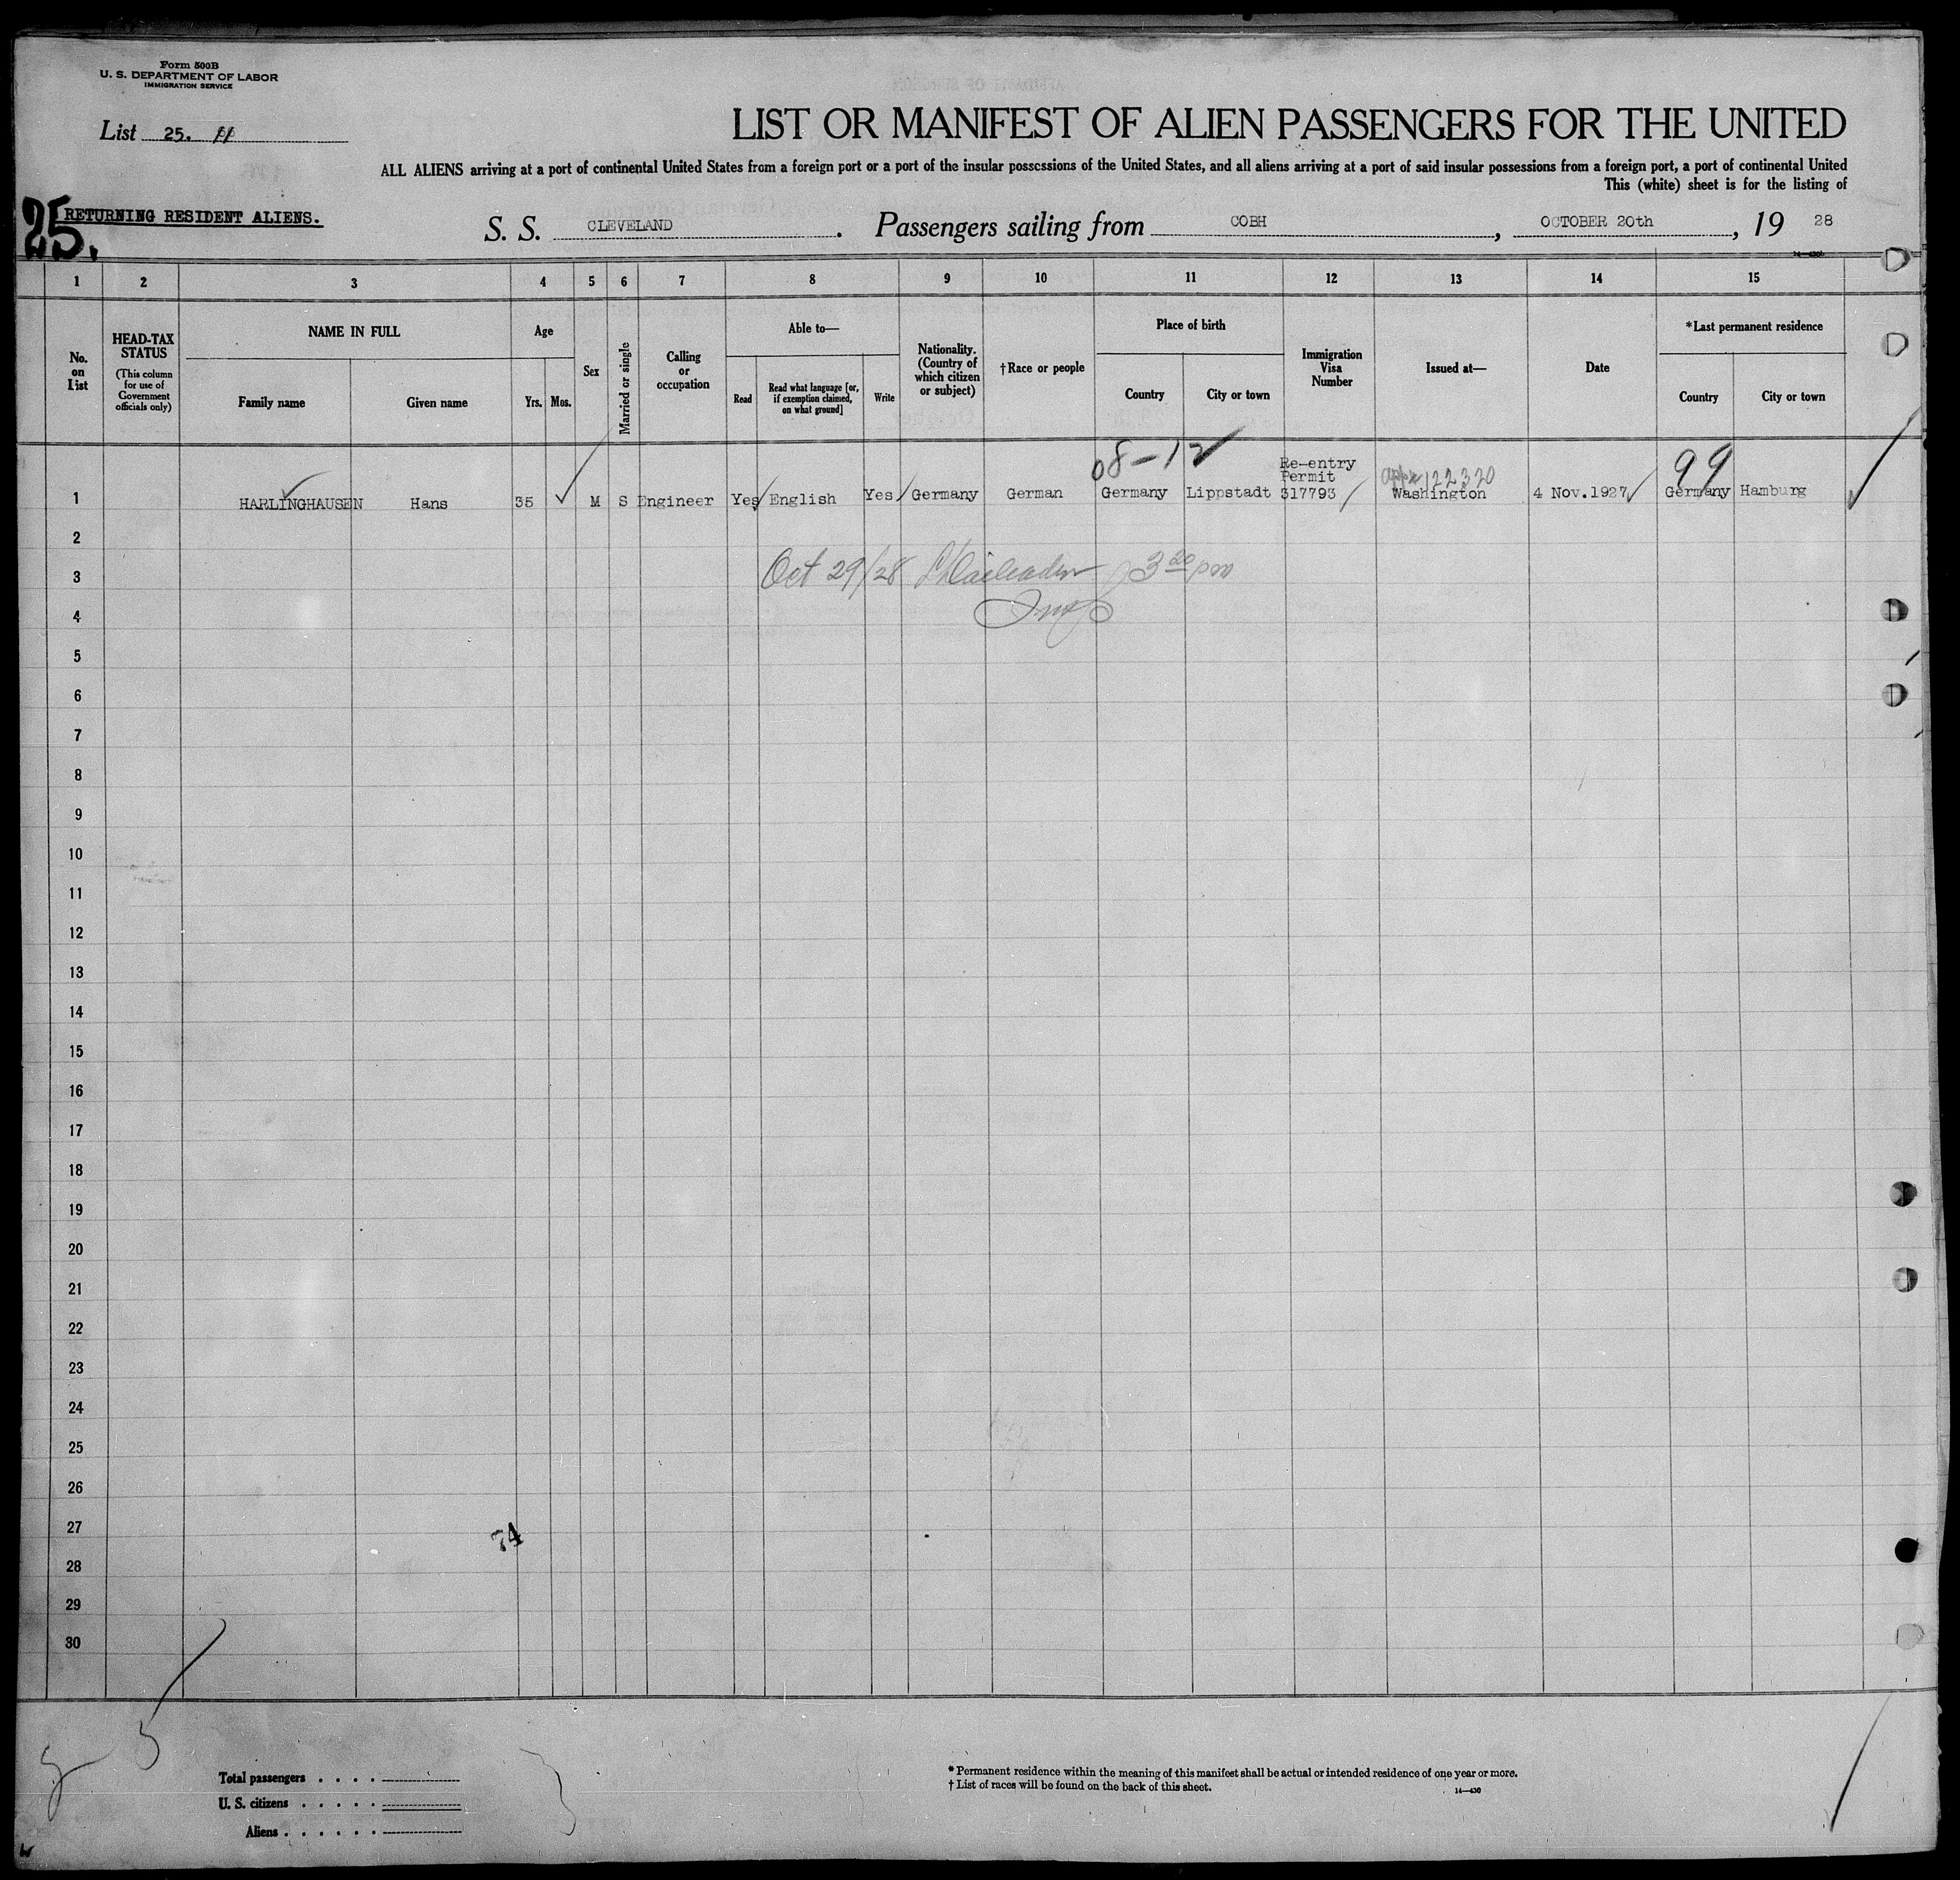 Form 500B
U. S. DEPARTMENT OF LABOR
IMMIGRATION SERVICE
List 25.
LIST OR MANIFEST OF ALIEN PASSENGERS FOR THE UNITED
ALL ALIENS arriving at a port of continental United States from a foreign port or a port of the insular possessions of the United States, and all aliens arriving at a port of said insular possessions from a foreign port, a port of continental United
This (white) sheet is for the listing of
25.
RETURNING RESIDENT ALIENS.
S. S. CLEVELAND. Passengers sailing from COBH, OCTOBER 20th, 19 28
1 2 3 4 5 6 7 8 9 10 11 12 13 14 15
No. on List
HEAD-TAX STATUS
(This column for use of Government officials only)
NAME IN FULL
Family name
Given name
Age
Yrs.
Mos.
Sex
Married or single
Calling or occupation
Able to—
Read
Read what language [or, if exemption claimed, on what ground]
Write
Nationality. (Country of which citizen or subject)
†Race or people
Place of birth
Country
City or town
Immigration Visa Number
Issued at—
Date
*Last permanent residence
Country
City or town
08-12
Re-entry
Permit
122320
99
1 HARLINGHAUSEN Hans 35 M S Engineer Yes English Yes Germany German Germany Lippstadt 317793 Washington 4 Nov.1927 Germany Hamburg
2
Oct 29/28 3 20 pm
3
4
Insp
5
6
7
8
9
10
11
12
13
14
15
16
17
18
19
20
21
22
23
24
25
26
27
74
28
29
30
Total passengers
U. S. citizens
Aliens
* Permanent residence within the meaning of this manifest shall be actual or intended residence of one year or more.
† List of races will be found on the back of this sheet.
14—430